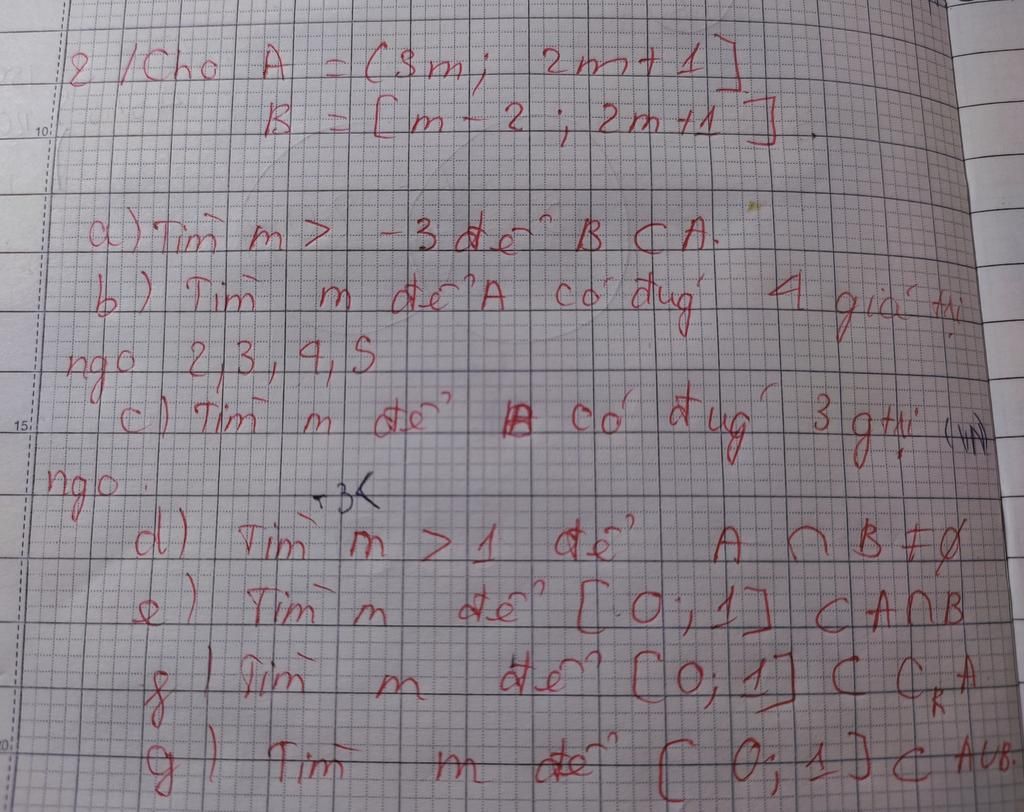 2/Cho A = (3m; 2m+1]
B = [m-2; 2m+1].
a) Tìm m > -3 để B ⊂ A.
b) Tìm m để A có đug 4 giá thị
ngo 2,3,4,5
c) Tìm m để A có đug 3 gthị
ngo.
-3<
d) Tìm m > 1 để A ∩ B ≠ ∅
e) Tìm m để [0;1] ⊂ A∩B
g) Tìm m để [0;1] ⊂ C_R A
g) Tìm m để [0;1] ⊂ A∪B.